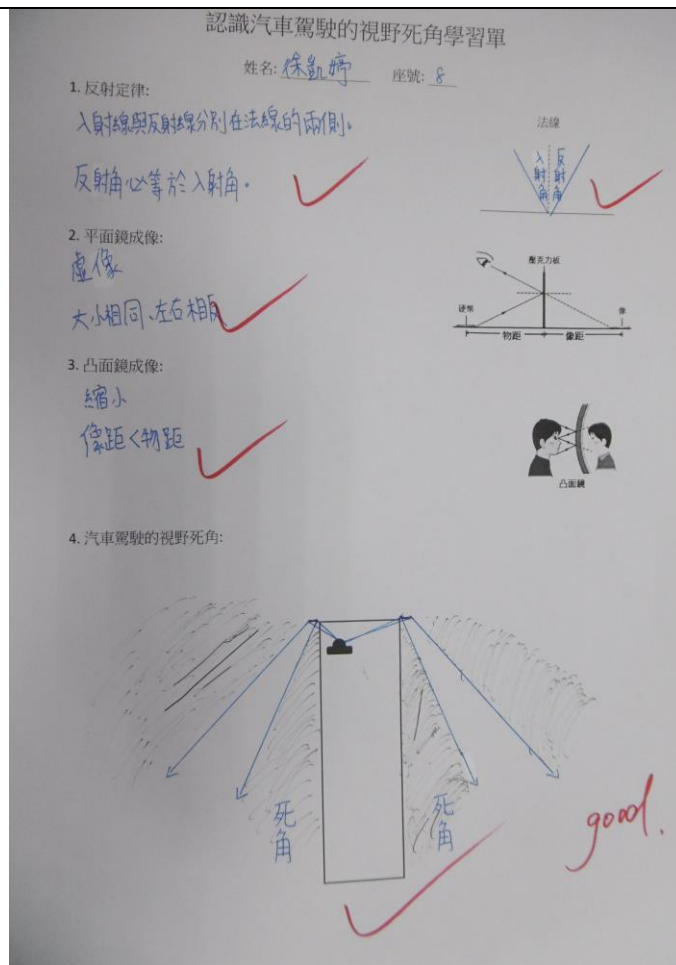 認識汽車駕駛的視野死角學習單
姓名: 徐凱婷 座號: 8
1. 反射定律:
入射線與反射線分別在法線的兩側。
反射角必等於入射角。
法線
入射角
反射角
2. 平面鏡成像:
虛像
大小相同、左右相反
壓克力板
硬幣
像
物距
像距
3. 凸面鏡成像:
縮小
像距<物距
凸面鏡
4. 汽車駕駛的視野死角:
死角
死角
good.